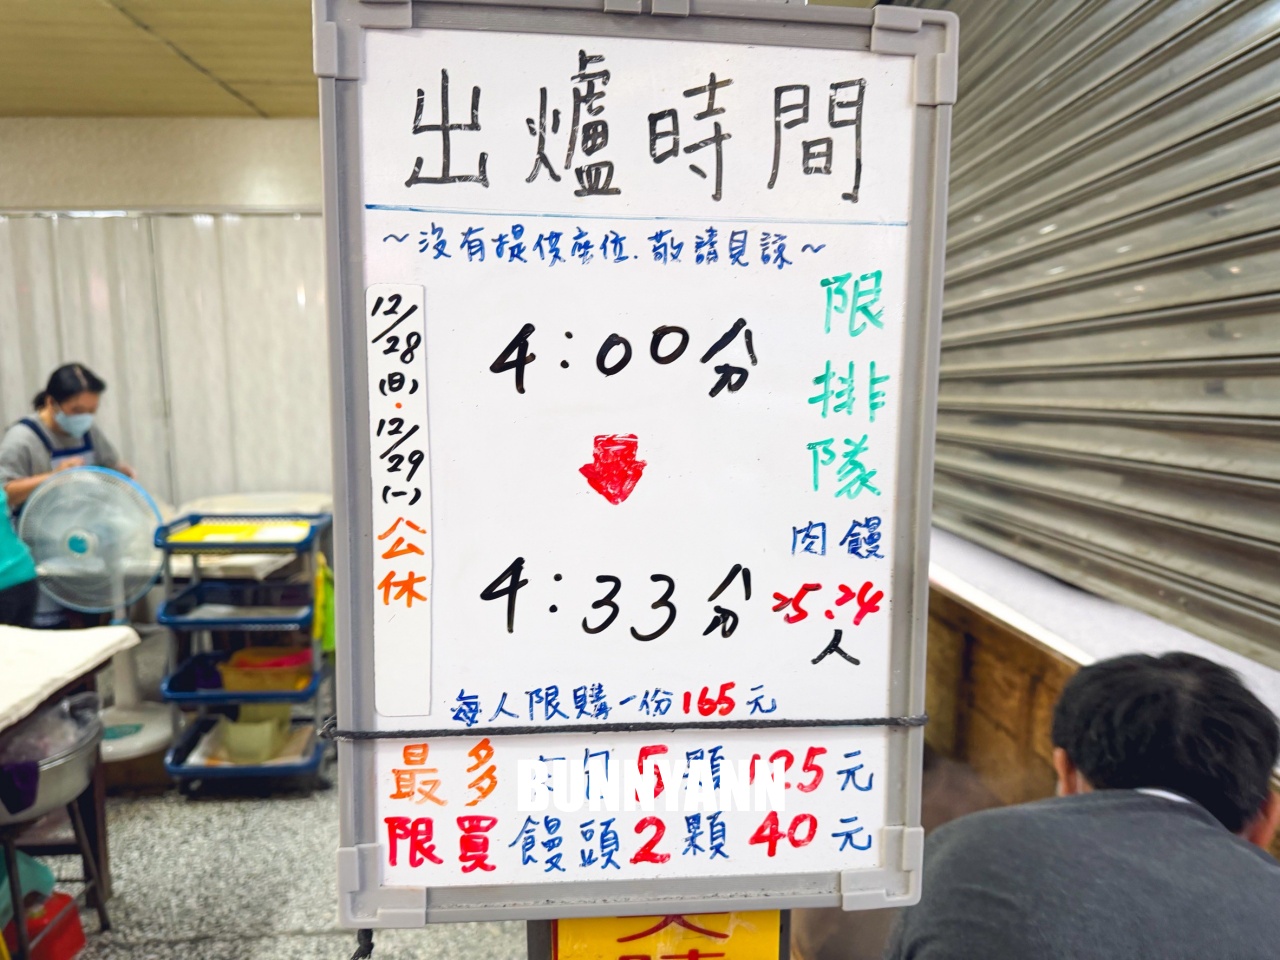 出爐時間
~沒有提供座位.敬請見諒~
12/28
(日)
.
12/29
(一)
公休
4:00分
4:33分
限排隊
肉 饅
25.24
人
每人限購一份165元
最多 肉 5顆125元
限買 饅頭2顆40元
BUNNYANN